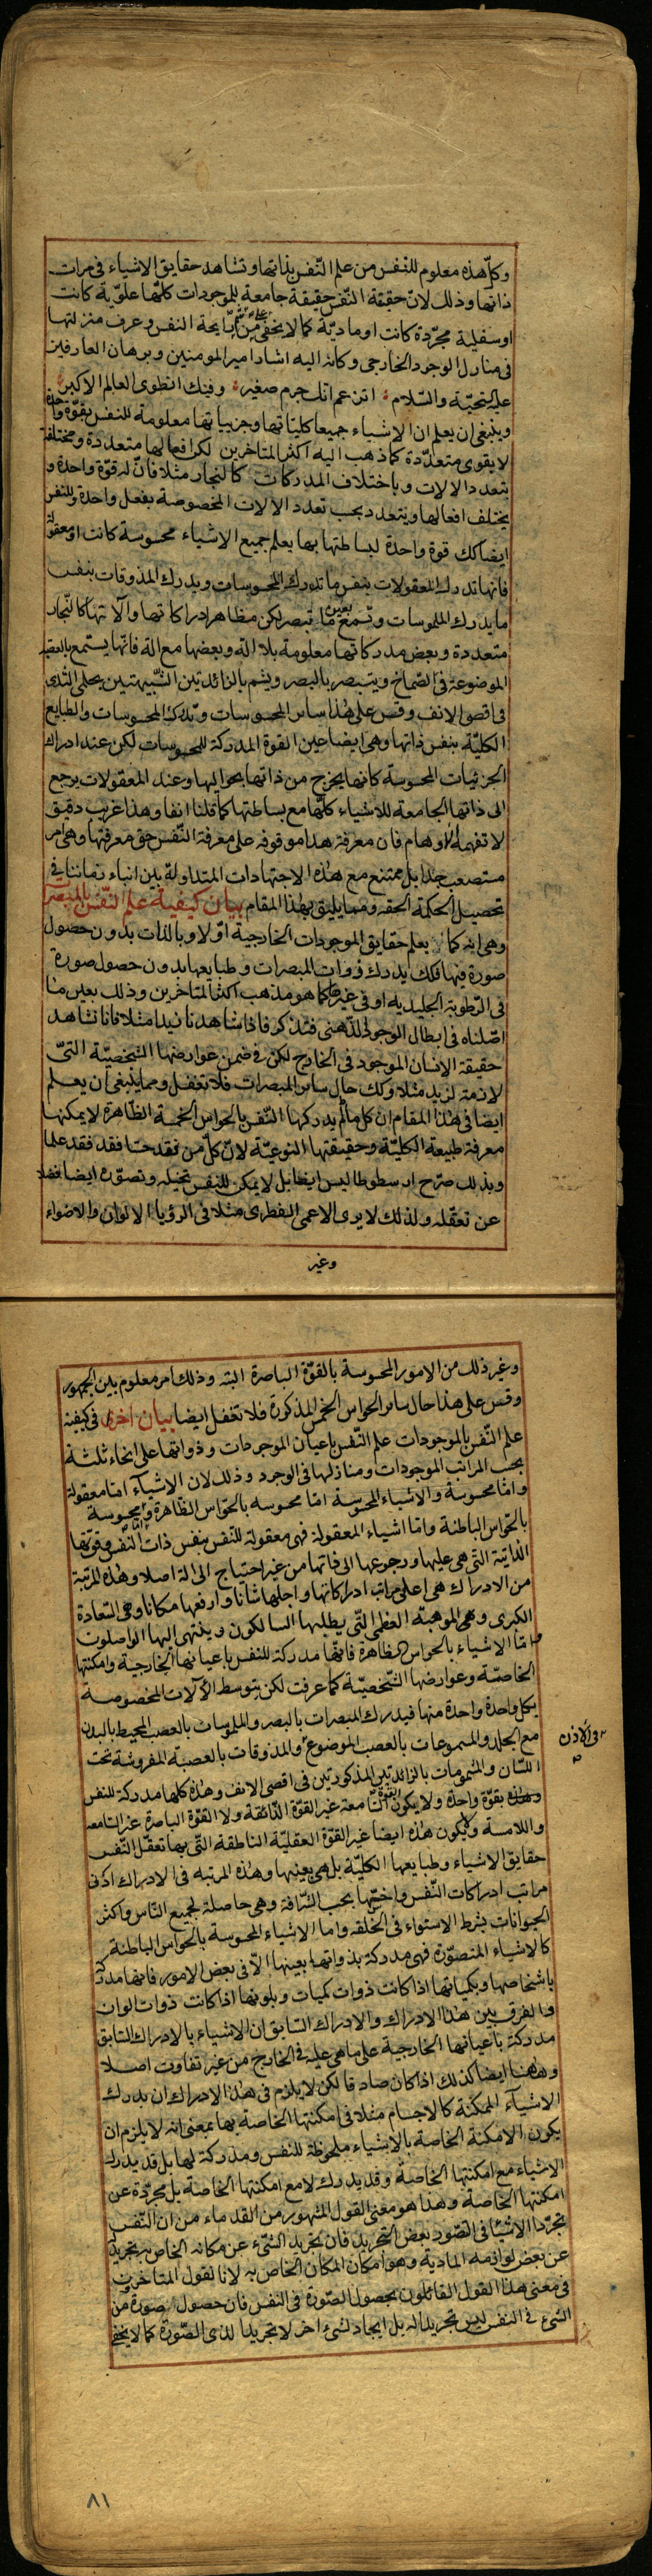 وكلّ هذه معلوم للنفس من علم النّفس بذاتها وتشاهد حقايق الاشياء فى مرات
ذاتها وذلك لانّ حقيقة النّفس حقيقة جامعة للموجودات كلّها علويّة كانت
اوسفلية مجرّدة كانت او مادية كما لا يخفى على من شمّ رايحة النفس وعرف منزلتها
فى منازل الوجود الخارجى وكانه اليه اشار امير المومنين وبرهان العارفين
عليه التحيّة والسّلام اتزعم انك جرم صغير وفيك انطوى العالم الاكبر
وينبغى ان يعلم ان الاشياء جميعا كلياتها وجزيياتها معلومة للنفس بقوّة واحدة
لا بقوى متعدّدة كما ذهب اليه اكثر المتاخرين لكن افعالها متعددة ومختلفة
بتعدد الالات وباختلاف المدركات كالنجار مثلا فانّ له قوّة واحدة و
يختلف افعالها ويتعدد بحسب تعدد الالات المخصوصة بفعل واحدة وللنفس
ايضا كك قوة واحدة لبساطتها بها يعلم جميع الاشياء محسوسة كانت او معقولة
فانها تدرك المعقولات بنفس ما تدرك المحسوسات ويدرك المذوقات بنفس
ما يدرك الملموسات وتسمع بعين ما تبصر لكن مظاهر ادراكاتها وآلاتها كالنجار
متعددة وبعض مدركاتها معلومة بلا الة وبعضها مع الة فانها يستمع بالعصبة
الموضوعة فى الصّماخ ويتبصر بالبصر ويشم بالزائدتين الشّبيهتين بحلمى الثدى
فى اقصى الانف وقس على هذا سائر المحسوسات وتدرك المحسوسات والطبايع
الكليّة بنفس ذاتها وهى ايضا حين القوة المدركة للمحسوسات لكن عند ادراك
الجزئيات المحسوسة كانها يخرج من ذاتها بحواليها وعند المعقولات يرجع
الى ذاتها الجامعة للاشياء كلّها مع بساطتها كما قلنا انفا وهذا غريب دقيق
لا تفهمه الاوهام فان معرفة هذا موقوفه على معرفة النّفس حق معرفتها وهى امر
مستصعب جدا بل ممتنع مع هذه الاجتهادات المتداولة بين ابناء زماننا فى
تحصيل الحكمة الحقه ومما يليق بهذا المقام بيان كيفية علم النّفس بالمبصرات
وهى انه كما يعلم حقايق الموجودات الخارجية اوّلا وبالذات بدون حصول
صورة فيها فكك يدرك ذوات المبصرات وطبايعها بدون حصول صورة
فى الرّطوبة الجليدية او فى غيرها كما هو مذهب اكثر المتاخرين وذلك بعين ما
اصّلناه فى ابطال الوجود الذّهنى فتذكر فاذا شاهدنا زيدا مثلا فانا نشاهد
حقيقة الانسان الموجود فى الخارج لكن فى ضمن عوارضها الشخصيّة التىّ
لازمة لزيد مثلا وكك حال سائر المبصرات فلا تغفل ومما ينبغى ان يعلم
ايضا فى هذا المقام ان كل ما لم يدركها النّفس بالحواس الخمسة الظاهرة لا يمكنها
معرفة طبيعة الكليّة وحقيقتها النوعيّة لانّ كلّ من فقد حسّا فقد فقد علما
وبذلك صرّح ارسطوطاليس ايضا بل لا يمكن للنفس تخيله وتصوّره ايضا فضلا
عن تعقّله ولذلك لا يرى الاعمى الفطرى مثلا فى الرؤيا الالوان والاضواء
وغير
وغير ذلك من الامور المحسوسة بالقوّة الباصرة البته وذلك امر معلوم بين الجمهور
وقس على هذا حال سائر الحواس الخمس المذكورة فلا تغفل ايضا بيان اخرى فى كيفية
علم النّفس بالموجودات علم النّفس باعيان الموجودات وذواتها على انحاء ثلثة
بحسب المراتب الموجودات ومنازلها فى الوجود وذلك لان الاشياء امّا معقولة
وامّا محسوسة والاشياء المحسوسة امّا محسوسه بالحواس الظاهرة وامّا محسوسة
بالحواس الباطنة وامّا اشياء المعقولة فهى معقولة للنّفس بنفس ذات النّفس وقوّتها
الذاتية التى هى عليها ورجوعها الى ذاتها من غير احتياج الى الة اصلا وهذه المرتبة
من الادراك هى اعلى مراتب ادراكاتها واجلها شانا وارفعها مكانا وهى السّعادة
الكبرى وهى الموهبة العظمى التّى يطلبها السالكون وينتهى اليها الواصلون
وامّا الاشياء بالحواس الظاهرة فانّها مدركة للنفس باعيانها الخارجية وامكنتها
الخاصّة وعوارضها الشّخصيّة كما عرفت لكن بتوسط الالات المخصوصة
بكل واحدة واحدة منها فيدرك المبصرات بالبصر والملموسات بالعصب المحيط بالبدن
مع الجلد والمسموعات بالعصب الموضوع والمذوقات بالعصبة المفروشة تحت
فى الاذن
اللسّان والمشمومات بالزائدتين المذكورتين فى اقصى الانف وهذه كلها مدركة للنفس
بقوّة واحدة ولا يكون القوّة السّامعة غير القوّة الذّائقة ولا القوّة الباصرة غير السّامعة
واللامسة ولا يكون هذه ايضا غير القوّة العقليّة الناطقة التّى بها تعقّل النّفس
حقايق الاشياء وطبايعها الكليّة بل هى بعينها وهذه المرتبه فى الادراك ادون
مراتب ادراكات النّفس واخسّها بحسب الشّرافة وهى حاصلة لجميع النّاس واكثر
الحيوانات بشرط الاستواء فى الخلقه واما الاشياء المحسوسة بالحواس الباطنة
كالاشياء المتصوّرة فهى مدركة بذواتها بعينها الاّ فى بعض الامور فانها مدركة
باشخاصها وبكمياتها اذا كانت ذوات كميات وبلونها اذا كانت ذوات لوان
والفرق بين هذا الادراك والادراك السّابق ان الاشياء بالادراك السّابق
مدركة باعيانها الخارجية على ما هى عليه فى الخارج من غير تفاوت اصلا
وههنا ايضا كذلك اذا كان صادقا لكن لا يلزم فى هذا الادراك ان يدرك
الاشياء الممكنة كالاجسام مثلا فى امكنتها الخاصة بها بمعنى انه لا يلزم ان
يكون الامكنة الخاصة بالاشياء ملحوظة للنفس ومدركة لها بل قد يدرك
الاشياء مع امكنتها الخاصة وقد يدرك لا مع امكنتها الخاصة بل مجرّدة عن
امكنتها الخاصة وهذا هو معنى القول المشهور من القدماء من ان النّفس
تجرّد الاشياء فى التصّور بعض التجريد فان تجريد الشّىء عن مكانه الخاص به تجريد
عن بعض لوازمه المادية وهو امكان المكان الخاص به لانا لقول المتاخرين
فى معنى هذا القول القائلون بحصول الصّورة فى النفس فان حصول صورة من
الشىء فى النفس ليس تجريدا له بل ايجاد لشىء اخر لا تجريدا لذى الصّورة كما لا يخفى
٨١